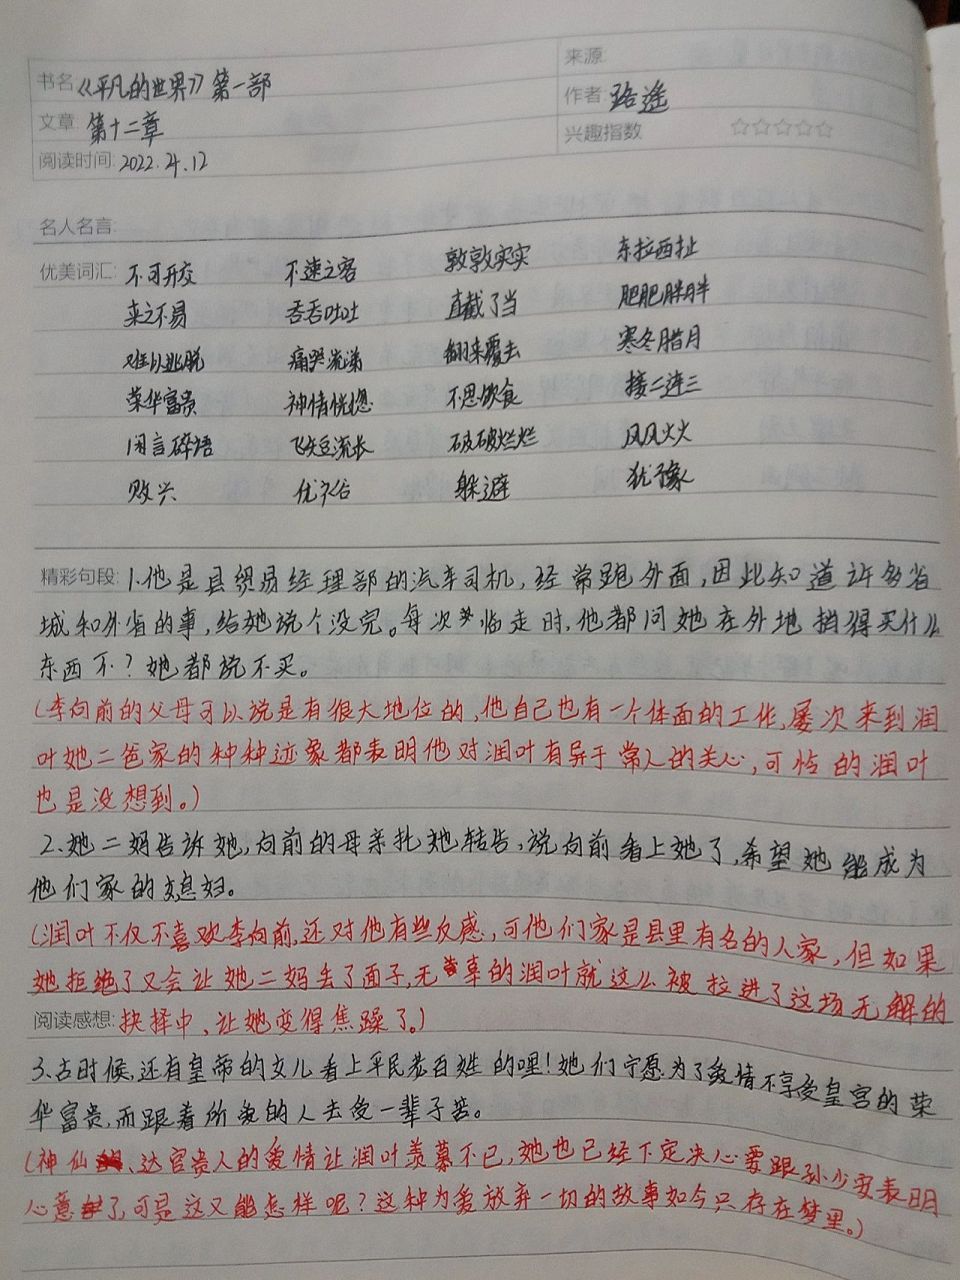 书名 《平凡的世界》第一部
来源
文章: 第十二章
作者: 路遥
阅读时间: 2022.4.12
兴趣指数 ☆☆☆☆☆
名人名言:
优美词汇: 不可开交 不速之客 敦敦实实 东拉西扯
来之不易 吞吞吐吐 直截了当 肥肥胖胖
难以逃脱 痛哭流涕 翻来覆去 寒冬腊月
荣华富贵 神情恍惚 不思饮食 接二连三
闲言碎语 飞短流长 破破烂烂 风风火火
败兴 优裕 躲避 犹豫
精彩句段: 1.他是县贸易经理部的汽车司机,经常跑外面,因此知道许多省
城和外省的事,给她说个没完。每次临走时,他都问她在外地捎得买什么
东西不?她都说不买。
(李向前的父母可以说是有很大地位的,他自己也有一个体面的工作,屡次来到润
叶她二爸家的种种迹象都表明他对润叶有异于常人的关心,可怜的润叶
也是没想到。)
2.她二妈告诉她,向前的母亲托她转告,说向前看上她了,希望她能成为
他们家的媳妇。
(润叶不仅不喜欢李向前,还对他有些反感,可他们家是县里有名的人家,但如果
她拒绝了又会让她二妈丢了面子,无辜的润叶就这么被拉进了这场无解的
阅读感想: 抉择中,让她变得焦躁了。)
3.古时候,还有皇帝的女儿看上平民老百姓的哩!她们宁愿为了爱情不享受皇宫的荣
华富贵,而跟着所爱的人去受一辈子苦。
(神仙、达官贵人的爱情让润叶羡慕不已,她也已经下定决心要跟孙少安表明
心意了,可是这又能怎样呢?这种为爱放弃一切的故事如今只存在梦里。)